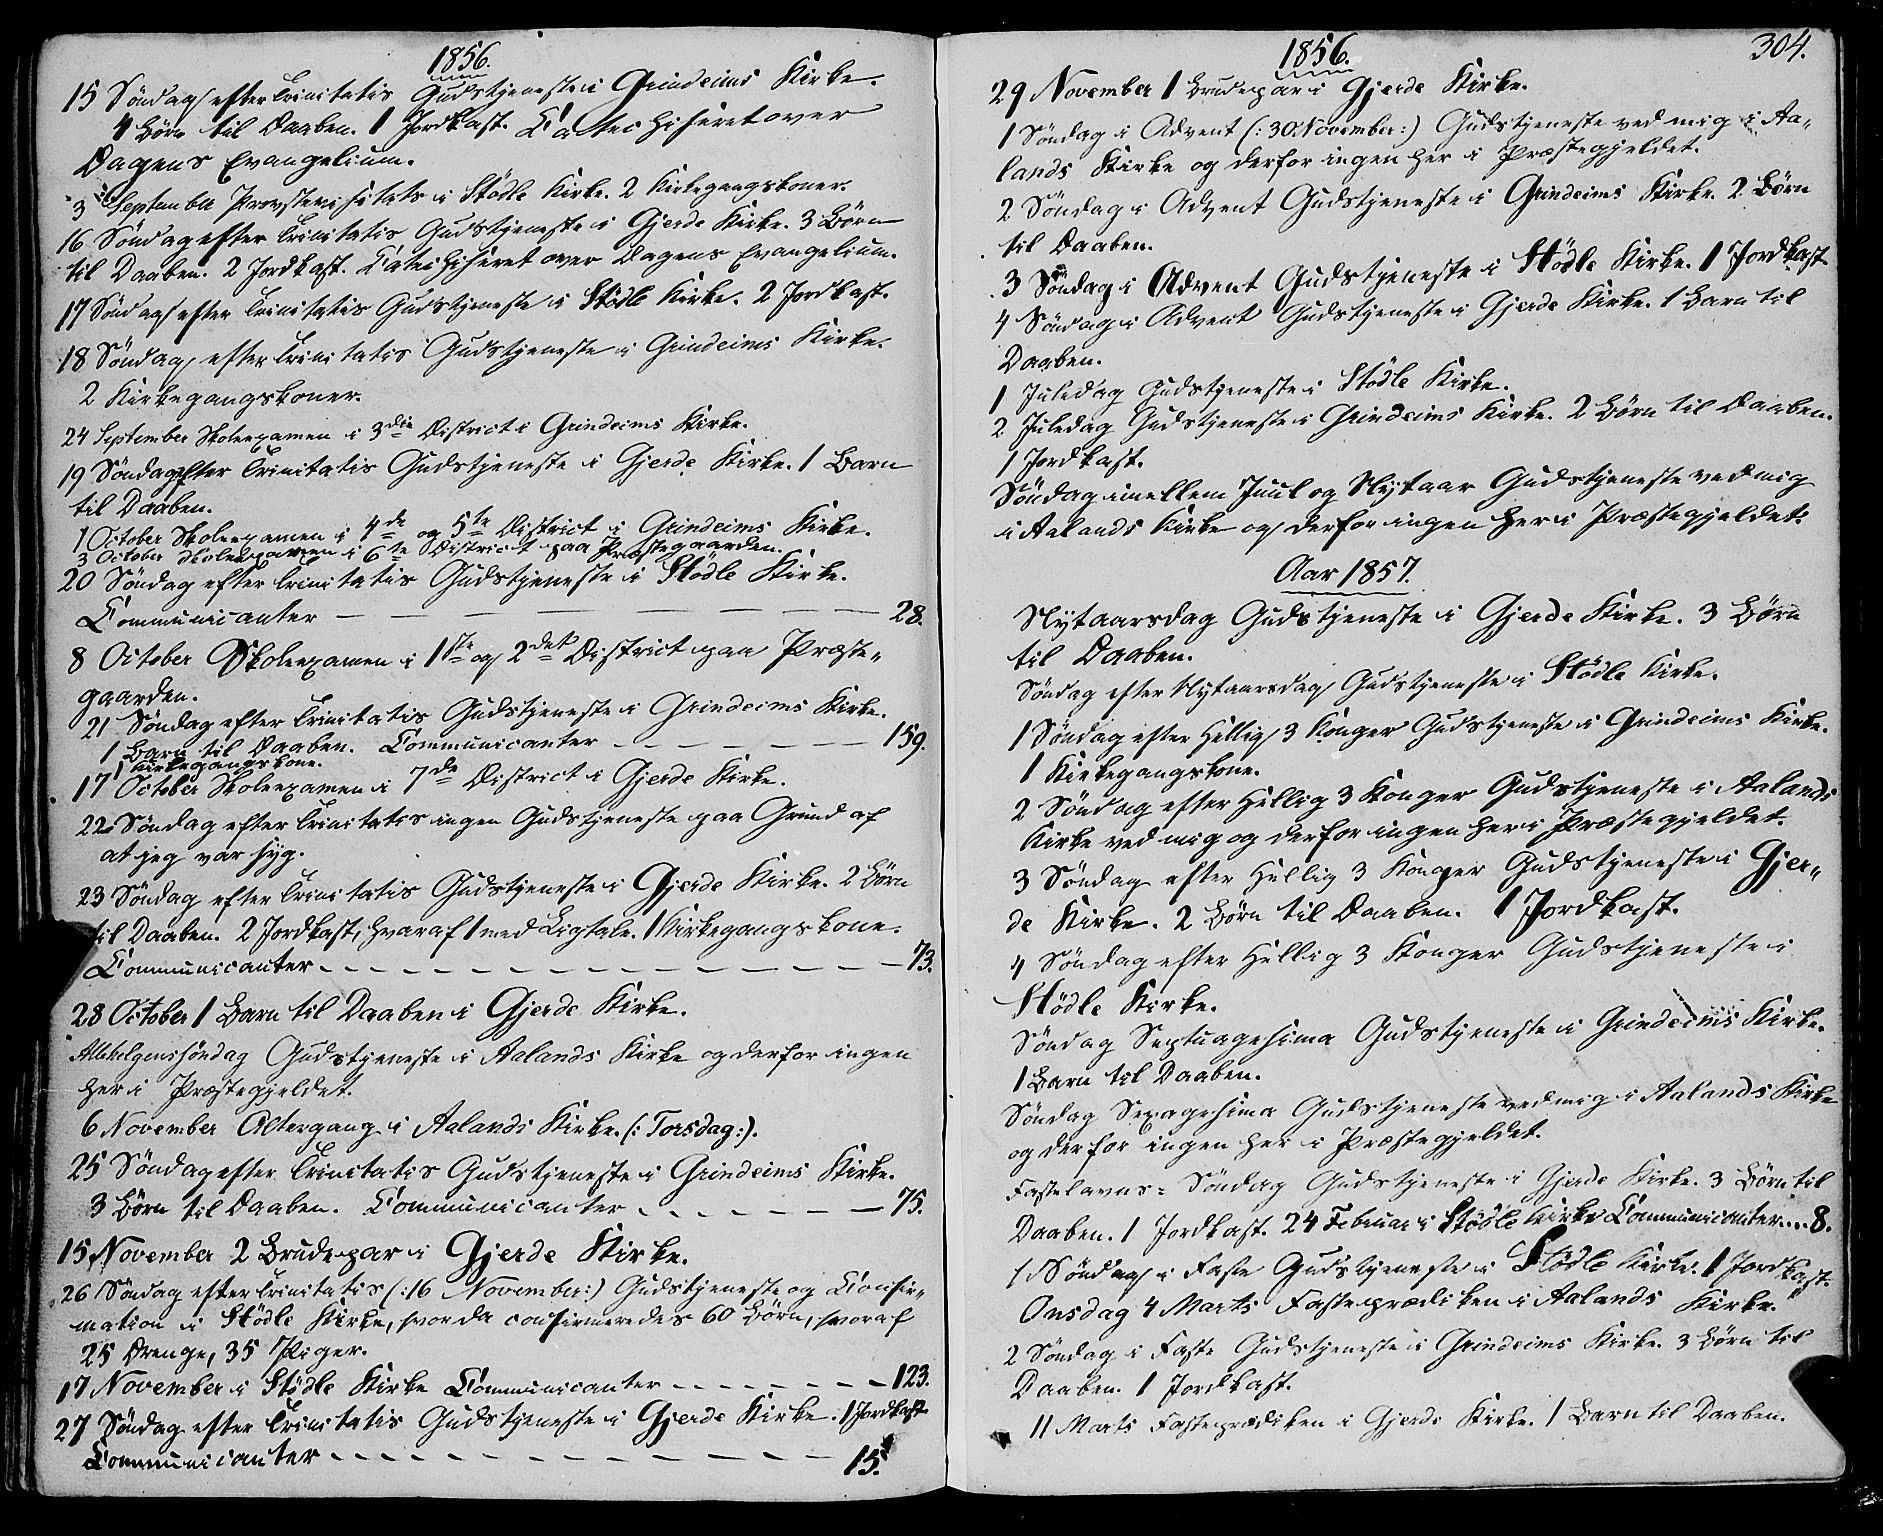 1856.
15 Søndag efter Trinitatis Gudstjeneste i Grindeims Kirke.
4 Børn til Daaben. 1 Jordkast. Catechiseret over
Dagens Evangelium.
3 September Provstevisitats i Stödle Kirke. 2 Kirkegangskoner.
16 Søndag efter Trinitatis Gudstjeneste i Gjerde Kirke. 3 Børn
til Daaben. 2 Jordkast. Catechiseret over Dagens Evangelium.
17 Søndag efter Trinitatis Gudstjeneste i Stödle Kirke. 2 Jordkast.
18 Søndag efter Trinitatis Gudstjeneste i Grindeims Kirke.
2 Kirkegangskoner.
24 September Skoleexamen i 3die District i Grindeims Kirke.
19 Søndag efter Trinitatis Gudstjeneste i Gjerde Kirke. 1 Barn
til Daaben.
1 October Skoleexamen i 4de og 5te District i Grindeims Kirke.
3 October Skoleexamen i 6te District paa Præstegaarden.
20 Søndag efter Trinitatis Gudstjeneste i Stödle Kirke.
Communicanter — — — — — — 28.
8 October Skoleexamen i 1ste og 2det District paa Præste„
gaarden.
21 Søndag efter Trinitatis Gudstjeneste i Grindeims Kirke.
1 Barn til Daaben. Communicanter - - - - - - 159.
1 Kirkegangskone.
17 October Skoleexamen i 7de District i Gjerde Kirke.
22 Søndag efter Trinitatis ingen Gudstjeneste paa Grund af
at jeg var syg.
23 Søndag efter Trinitatis Gudstjeneste i Gjerde Kirke. 2 Børn
til Daaben. 2 Jordkast, hvoraf 1 med Ligtale. 1 Kirkegangskone.
Communicanter - - - - - - - - - - 73.
28 October 1 Barn til Daaben i Gjerde Kirke.
Allehelgenssøndag Gudstjeneste i Aalands Kirke og derfor ingen
her i Præstegjeldet.
6 November Altergang i Aalands Kirke. (: Torsdag :).
25 Søndag efter Trinitatis Gudstjeneste i Grindeims Kirke.
3 Børn til Daaben. Communicanter - - - - - - 75.
15 November 2 Brudepar i Gjerde Kirke.
26 Søndag efter Trinitatis (: 16 November :) Gudstjeneste og Confir„
mation i Stödle Kirke, hvor da confirmeredes 60 Børn, hvoraf
25 Drenge, 35 Piger.
17 November i Stödle Kirke Communicanter - - - - - - 123.
27 Søndag efter Trinitatis Gudstjeneste i Gjerde Kirke. 1 Jordkast
Communicanter - - - - - - - - - 15.
1856.
304.
29 November 1 Brudepar i Gjerde Kirke.
1 Søndag i Advent (: 30 November :) Gudstjeneste ved mig i Aa„
lands Kirke og derfor ingen her i Præstegjeldet.
2 Søndag i Advent Gudstjeneste i Grindeims Kirke. 2 Børn
til Daaben.
3 Søndag i Advent Gudstjeneste i Stödle Kirke. 1 Jordkast
4 Søndag i Advent Gudstjeneste i Gjerde Kirke. 1 Barn til
Daaben.
1 Juledag Gudstjeneste i Stödle Kirke.
2 Juledag Gudstjeneste i Grindeims Kirke. 2 Børn til Daaben.
1 Jordkast.
Søndag imellem Juul og Nytaar Gudstjeneste ved mig
i Aalands Kirke og derfor ingen her i Præstegjeldet.
Aar 1857.
Nytaarsdag Gudstjeneste i Gjerde Kirke. 3 Børn
til Daaben.
Søndag efter Nytaarsdag Gudstjeneste i Stödle Kirke.
1 Søndag efter Hellig 3 Konger Gudstjeneste i Grindeims Kirke.
1 Kirkegangskone.
2 Søndag efter Hellig 3 Konger Gudstjeneste i Aalands
Kirke ved mig og derfor ingen her i Præstegjeldet.
3 Søndag efter Hellig 3 Konger Gudstjeneste i Gjer„
de Kirke. 2 Børn til Daaben. 1 Jordkast.
4 Søndag efter Hellig 3 Konger Gudstjeneste i
Stödle Kirke.
Søndag Septuagesima Gudstjeneste i Grindeims Kirke.
1 Barn til Daaben.
Søndag Sexagesima Gudstjeneste ved mig i Aalands Kirke
og derfor ingen her i Præstegjeldet.
Fastelavns- Søndag Gudstjeneste i Gjerde Kirke. 3 Børn til
Daaben. 1 Jordkast. 24 Februar i Stödle Kirke Communicanter.... 8.
1 Søndag i Faste Gudstjeneste i Stödle Kirke. 1 Jordkast.
Onsdag 4 Marts Fasteprædiken i Aalands Kirke.
2 Søndag i Faste Gudstjeneste i Grindeims Kirke. 3 Børn til
Daaben. 1 Jordkast.
11 Marts Fasteprædiken i Gjerde Kirke. 1 Barn til Daaben.